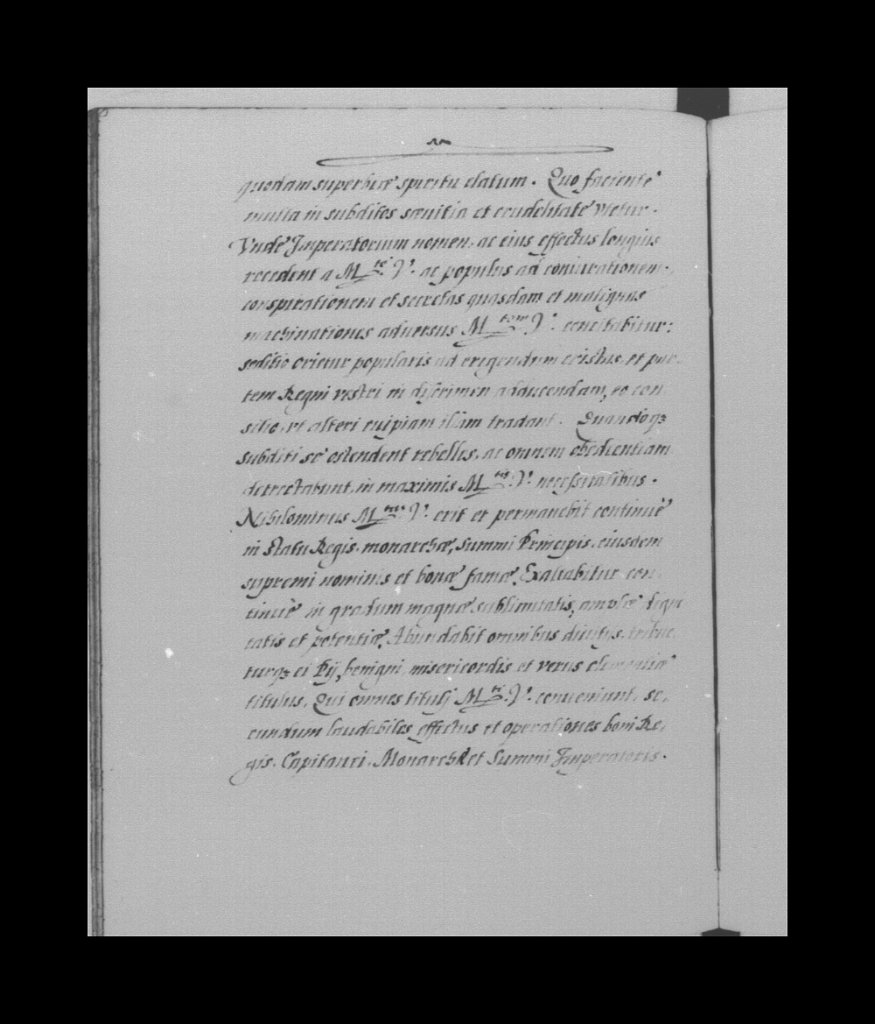 quodam superbiæ spiritu elatum. Quo faciente
multa in subditos sæuitia et crudelitate vtetur.
Vnde Imperatorium nomen, ac eius effectus longius
recedent a M.te V. ac populus ad coniurationem,
conspirationem et secretas quasdam et malignas
machinationes aduersus M.tem V. concitabitur:
seditio orietur popularis ad erigendum cristas, et par-
tem Regni vestri in discrimen adducendam, eo con
silio, vt alteri cuipiam illam tradant. Quandoq3
subditi se ostendent rebelles, ac omnem obedientiam
detrectabunt, in maximis M. V. necessitatibus.
Nihilominus M. V. erit et permanebit continuè
in statu Regis, monarchæ, summi Principis, eiusdem
supremi nominis et bonæ famæ. Exaltabitur con
tinuè in gradum magnæ sublimitatis, amplæ digni
tatis et potentiæ. Abundabit omnibus diuitijs, tribue
turq3 ei Pij, benigni, misericordis et verus clementiæ
titulus. Qui omnes tituli M.ti V. conueniunt, se-
cundum laudabiles effectus et operationes boni Re,
gis, Capitanei, Monarchæ et Summi Imperatoris.